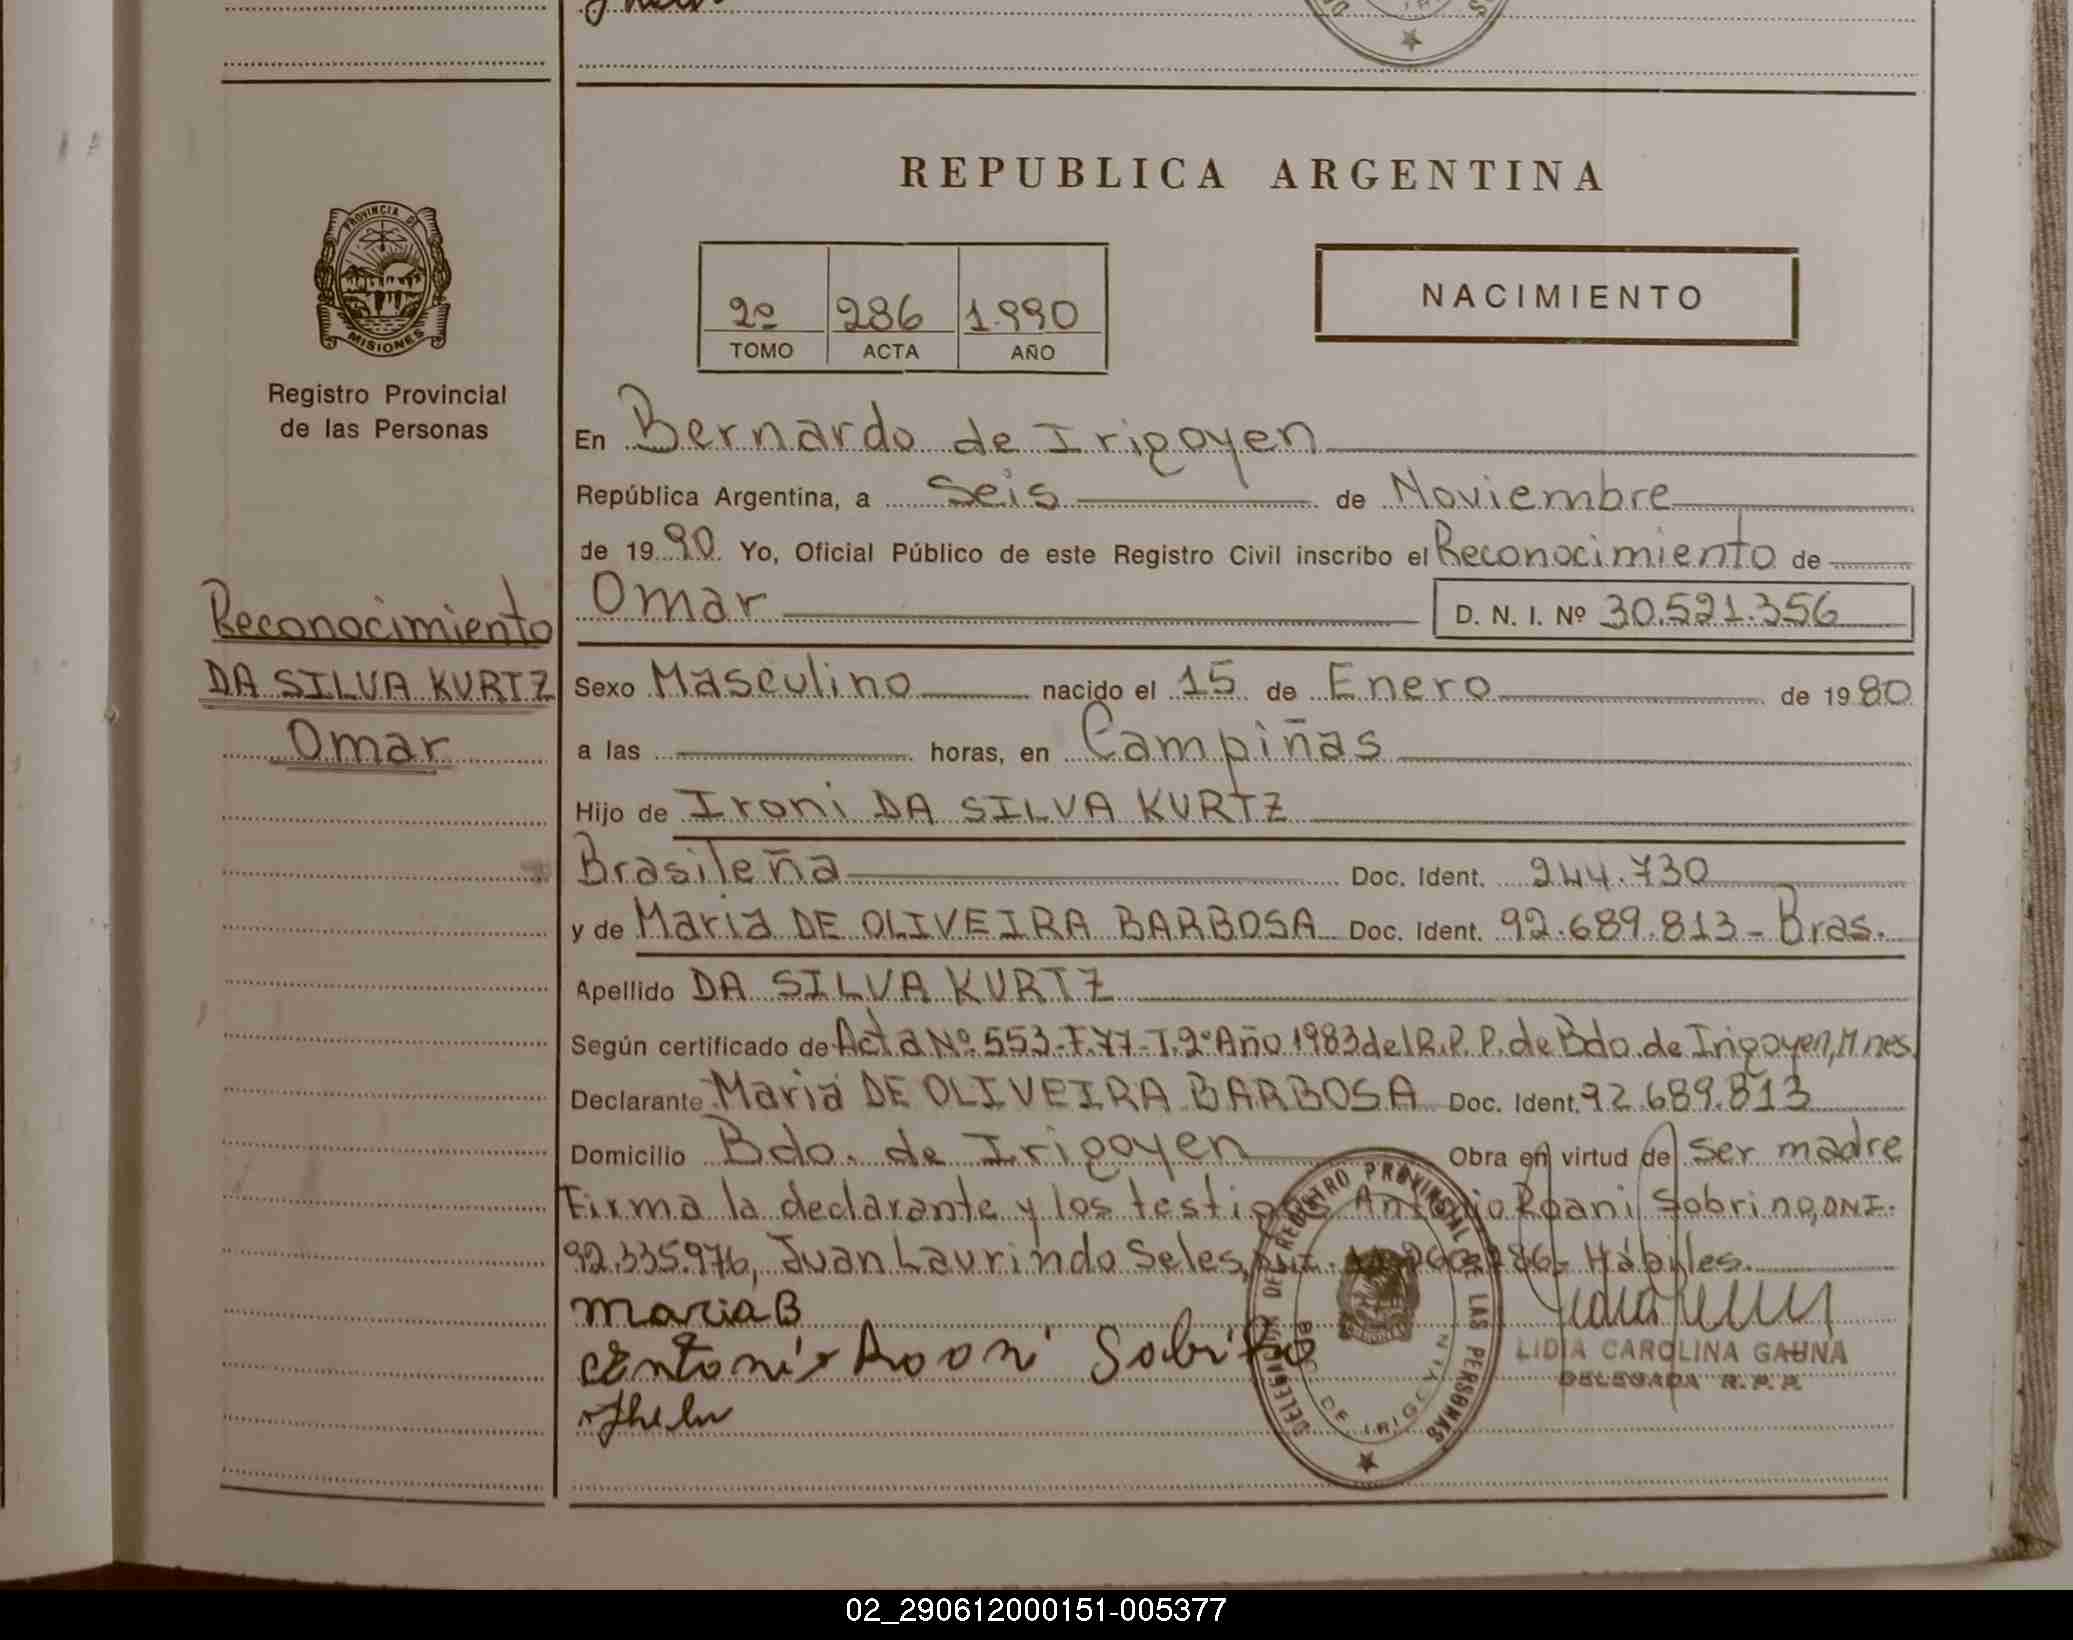 REPUBLICA ARGENTINA
PROVINCIA DE
MISIONES
Registro Provincial
de las Personas
2º 286 1.990
TOMO ACTA AÑO
NACIMIENTO
En Bernardo de Irigoyen
República Argentina, a Seis de Noviembre
de 1990. Yo, Oficial Público de este Registro Civil inscribo el Reconocimiento de
Omar D. N. I. Nº 30.521.356
Reconocimiento
DA SILVA KURTZ
Omar
Sexo Masculino nacido el 15 de Enero de 1980
a las horas, en Campiñas
Hijo de Ironi DA SILVA KURTZ
Brasileña Doc. Ident. 244.730
y de Maria DE OLIVEIRA BARBOSA Doc. Ident. 92.689.813 - Bras.
Apellido DA SILVA KURTZ
Según certificado de Acta Nº 553-F.77-T.2º Año 1983 del R.P.P. de Bdo. de Irigoyen, Mnes.
Declarante Maria DE OLIVEIRA BARBOSA Doc. Ident. 92.689.813
Domicilio Bdo. de Irigoyen Obra en virtud de ser madre
Firma la declarante y los testigos Antonio Roani Sobrino, DNI.
92.335.976, Juan Laurindo Seles, Hábiles.
Maria B
Antonio Rooni Sobrino
LIDIA CAROLINA GAUNA
DELEGADA R.P.P.
DELEGACION DEL REGISTRO PROVINCIAL DE LAS PERSONAS
BDO. DE IRIGOYEN
02_290612000151-005377